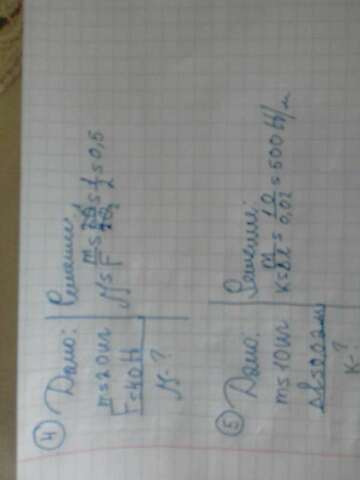 ④ Дано:
m = 20 кг
F = 40 Н
N - ?
Решение:
N = m/F = 20/40 = 1/2 = 0,5
⑤ Дано:
m = 10 кг
Δl = 0,02 м
k - ?
Решение:
k = m/Δl = 10/0,02 = 500 Н/м